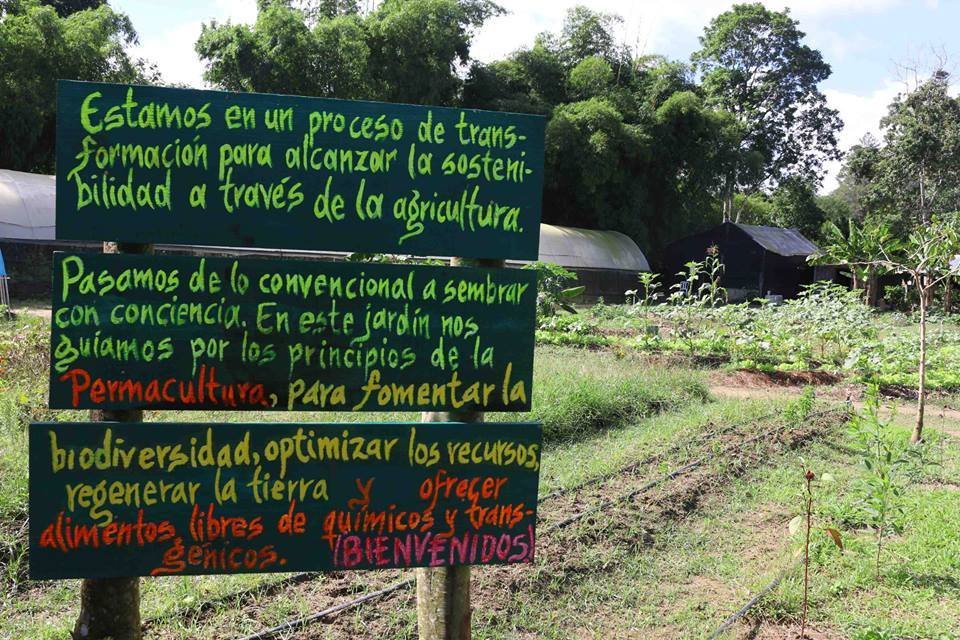 Estamos en un proceso de trans-
formación para alcanzar la sosteni-
bilidad a través de la agricultura.
Pasamos de lo convencional a sembrar
con conciencia. En este jardín nos
guíamos por los principios de la
Permacultura, para fomentar la
biodiversidad, optimizar los recursos,
regenerar la tierra y ofrecer
alimentos libres de químicos y trans-
génicos. ¡BIENVENIDOS!